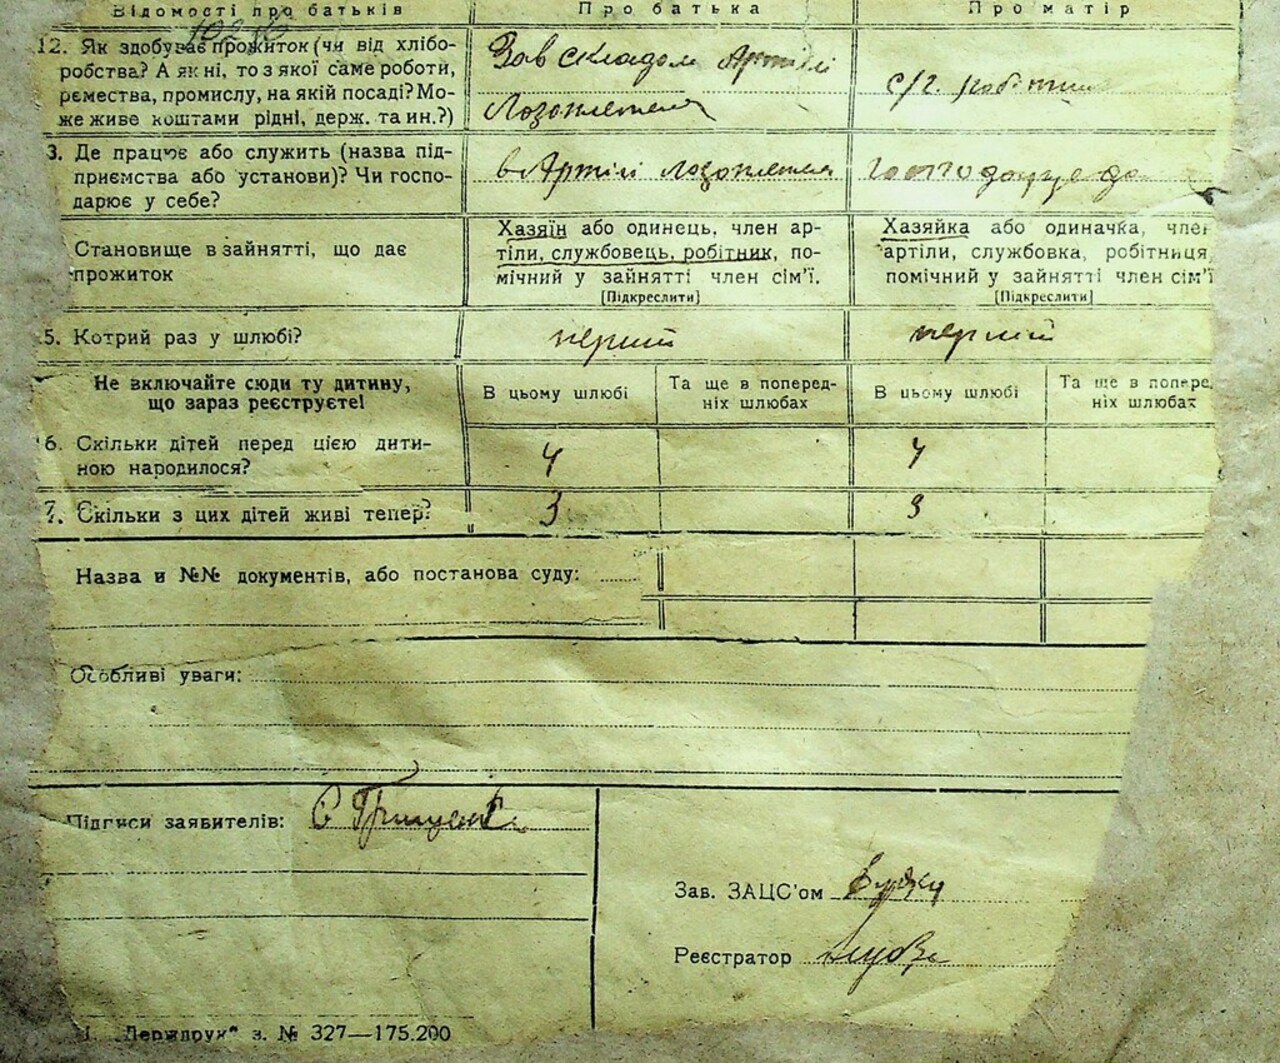 Відомості про батьків
Про батька
Про матір
12. Як здобуває прожиток (чи від хлібо-
робства? А як ні, то з якої саме роботи,
ремества, промислу, на якій посаді? Мо-
же живе коштами рідні, держ. та ин.?)
Зав складом Артілі
Лозоплетеля
с/г. робітниця
3. Де працює або служить (назва під-
приємства або установи)? Чи госпо-
дарює у себе?
в Артілі лозоплетеля
Становище в зайнятті, що дає
прожиток
Хазяїн або одинець, член ар-
тіли, службовець, робітник, по-
мічний у зайнятті член сім'ї.
[Підкреслити]
Хазяйка або одиначка, член
артіли, службовка, робітниця,
помічний у зайнятті член сім'ї
[Підкреслити]
5. Котрий раз у шлюбі?
перший
перший
Не включайте сюди ту дитину,
що зараз реєструєте!
В цьому шлюбі
Та ще в поперед-
ніх шлюбах
В цьому шлюбі
Та ще в попере
ніх шлюбах
6. Скільки дітей перед цією дити-
ною народилося?
4
4
7. Скільки з цих дітей живі тепер?
3
3
Назва и №№ документів, або постанова суду:
Особливі уваги:
Підписи заявителів:
Зав. ЗАЦС'ом
Реєстратор
"Держдрук" з. № 327—175.200